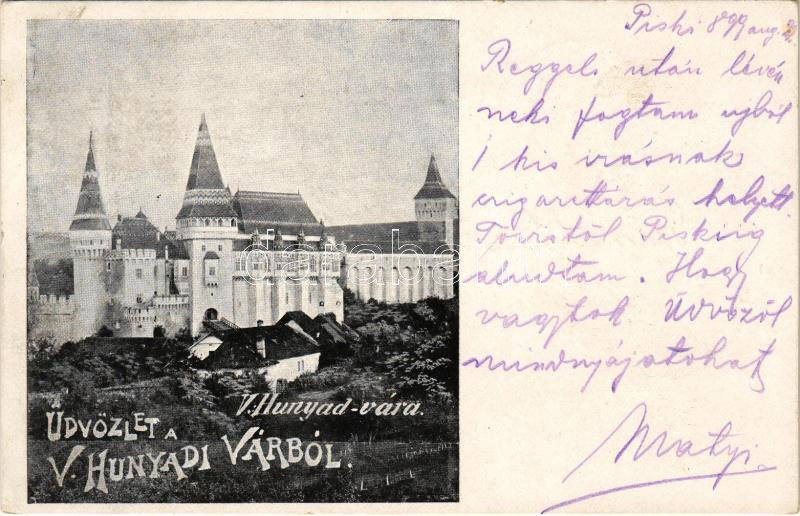 Piski 899 aug.
Reggeli után lévén
neki fogtam ujból
1 kis irásnak
czigarettázás helyett.
Tövistől Piskiig
aludtam. Hogy
vagytok Üdvözöl
mindnyájatokat
Matyi.
V. Hunyad-vára.
ÜDVÖZLET A
V. HUNYADI VÁRBÓL.
darabanth